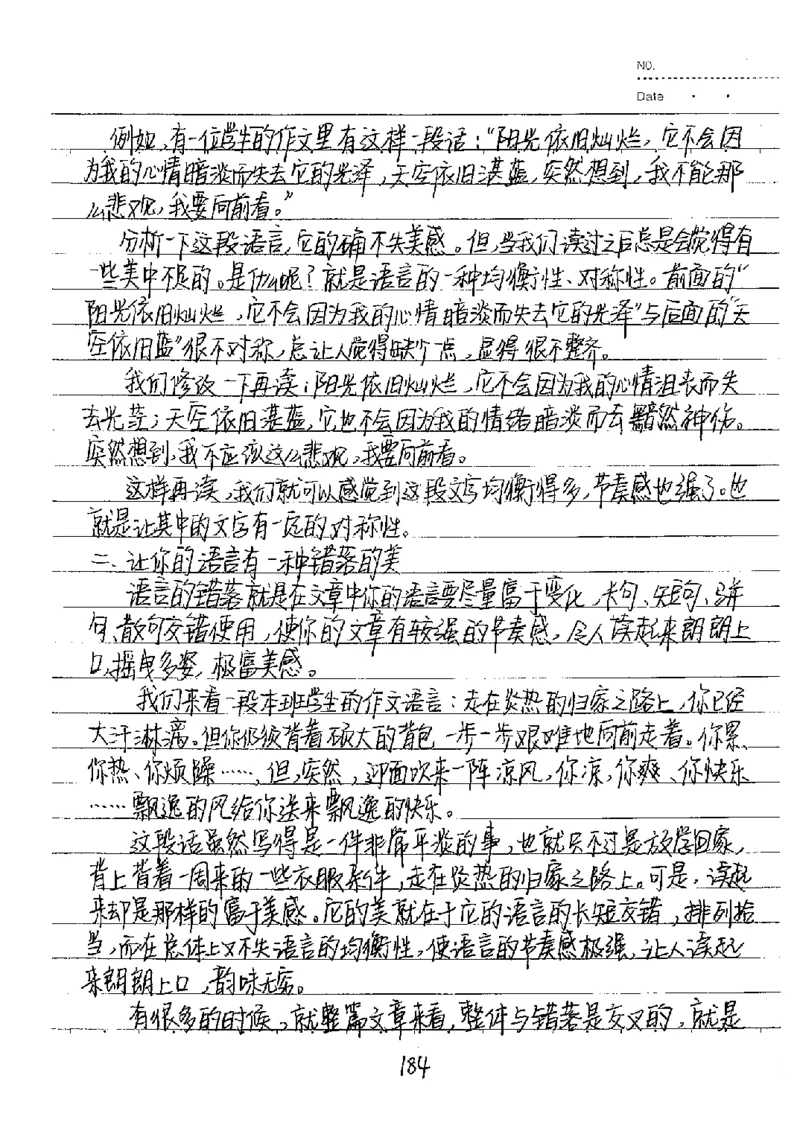 NO.
Date
例如,有一位学生的作文里有这样一段话:"阳光依旧灿烂,它不会因
为我的心情暗淡而失去它的光泽,天空依旧湛蓝,突然想到,我不能那
么悲观,我要向前看。"
分析一下这段语言,它的确不失美感。但,当我们读过之后总是会觉得有
一些美中不足的。是什么呢?就是语言的一种均衡性、对称性。前面的"
阳光依旧灿烂,它不会因为我的心情暗淡而失去它的光泽"与后面的"天
空依旧蓝"很不对称,总让人觉得缺个点,显得很不整齐。
我们修改一下再读:阳光依旧灿烂,它不会因为我的心情沮丧而失
去光茎;天空依旧湛蓝,它也不会因为我的情绪暗淡而去黯然神伤。
突然想到,我不应该这么悲观,我要向前看。
这样再读,我们就可以感觉到这段文字均衡得多,节奏感也强了。也
就是让其中的文字有一定的对称性。
二、让你的语言有一种错落的美
语言的错落就是在文章中你的语言要尽量富于变化,长句、短句、骈
句、散句交错使用,使你的文章有较强的节奏感,令人读起来朗朗上
口,摇曳多姿,极富美感。
我们来看一段本班学生的作文语言:走在炎热的归家之路上,你已经
大汗淋漓。但你仍须背着硕大的背包一步一步艰难地向前走着。你累、
你热、你烦躁……,但,突然,迎面吹来一阵凉风,你凉,你爽、你快乐
……飘逸的风给你送来飘逸的快乐。
这段话虽然写得是一件非常平淡的事,也就只不过是放学回家,
背上背着一周来的一些衣服条件,走在炎热的归家之路上。可是,读起
来却是那样的富于美感。它的美就在于它的语言的长短交错,排列恰
当,而在总体上又不失语言的均衡性,使语言的节奏感极强,让人读起
来朗朗上口,韵味无穷。
有很多的时候,就整篇文章来看,整体与错落是交叉的,就是
184